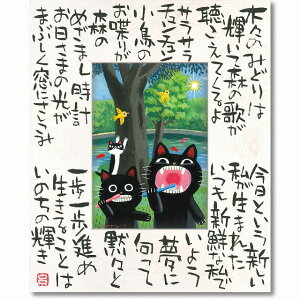 木々のみどりは
輝いて森の歌が
聴こえてくるよ
サラサラ
チュンチュン
小鳥の
お喋りが
森の
めざまし時計
お日さまの光が
まぶしく窓に
今日という新しい
私が生まれた
いつも新鮮な私で
いよう
夢に
向って
黙々と
一歩一歩進め
生きることは
いのちの輝き